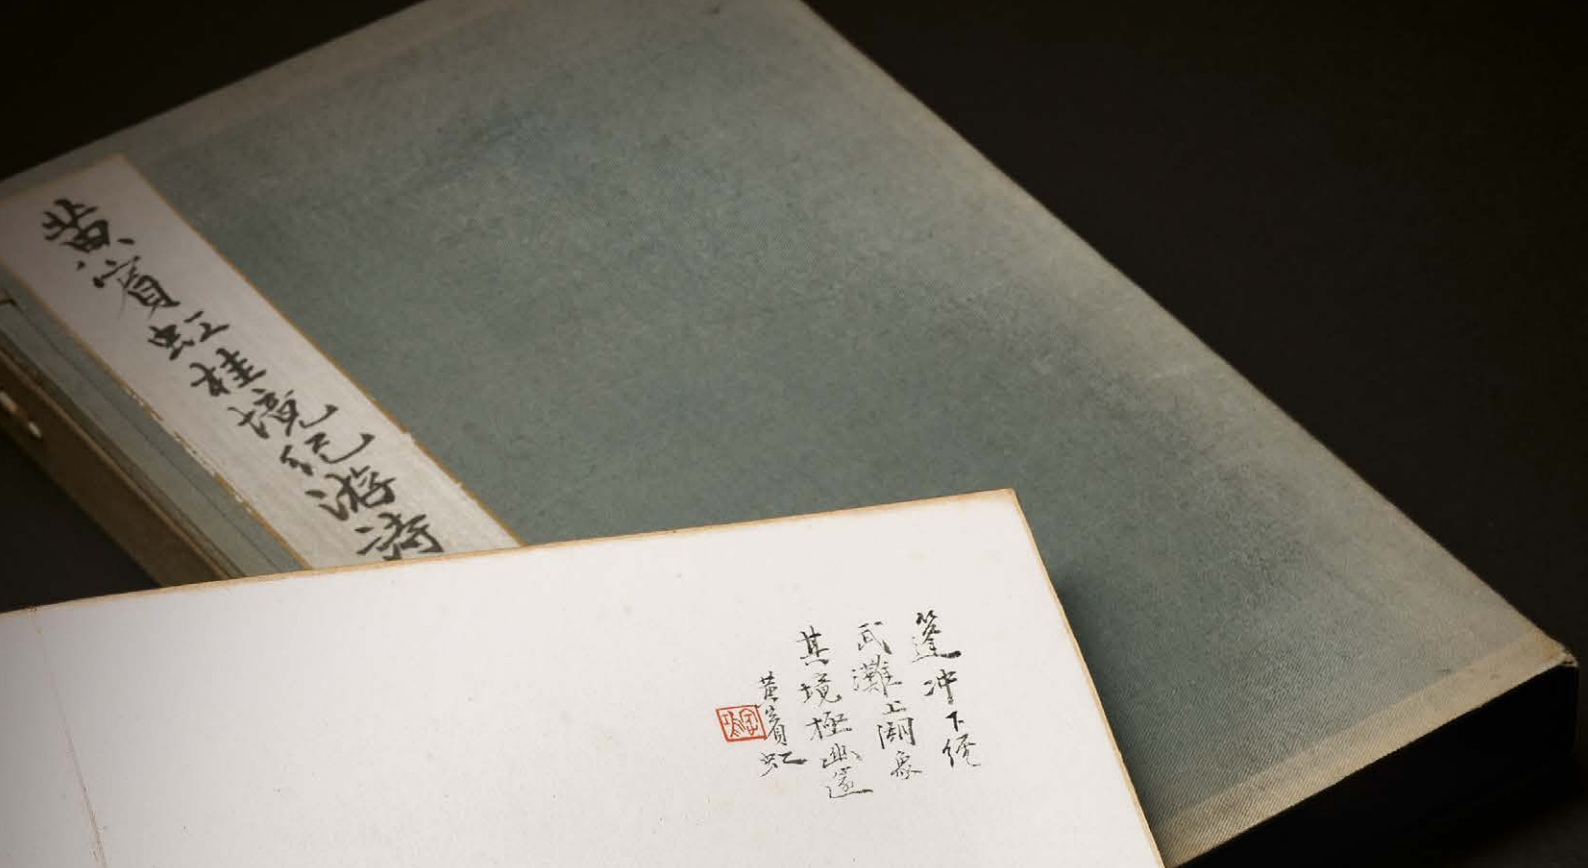 黄賓虹桂境紀游詩
篷冲下經
武灘上湖衆
其境極幽邃
黄賓虹